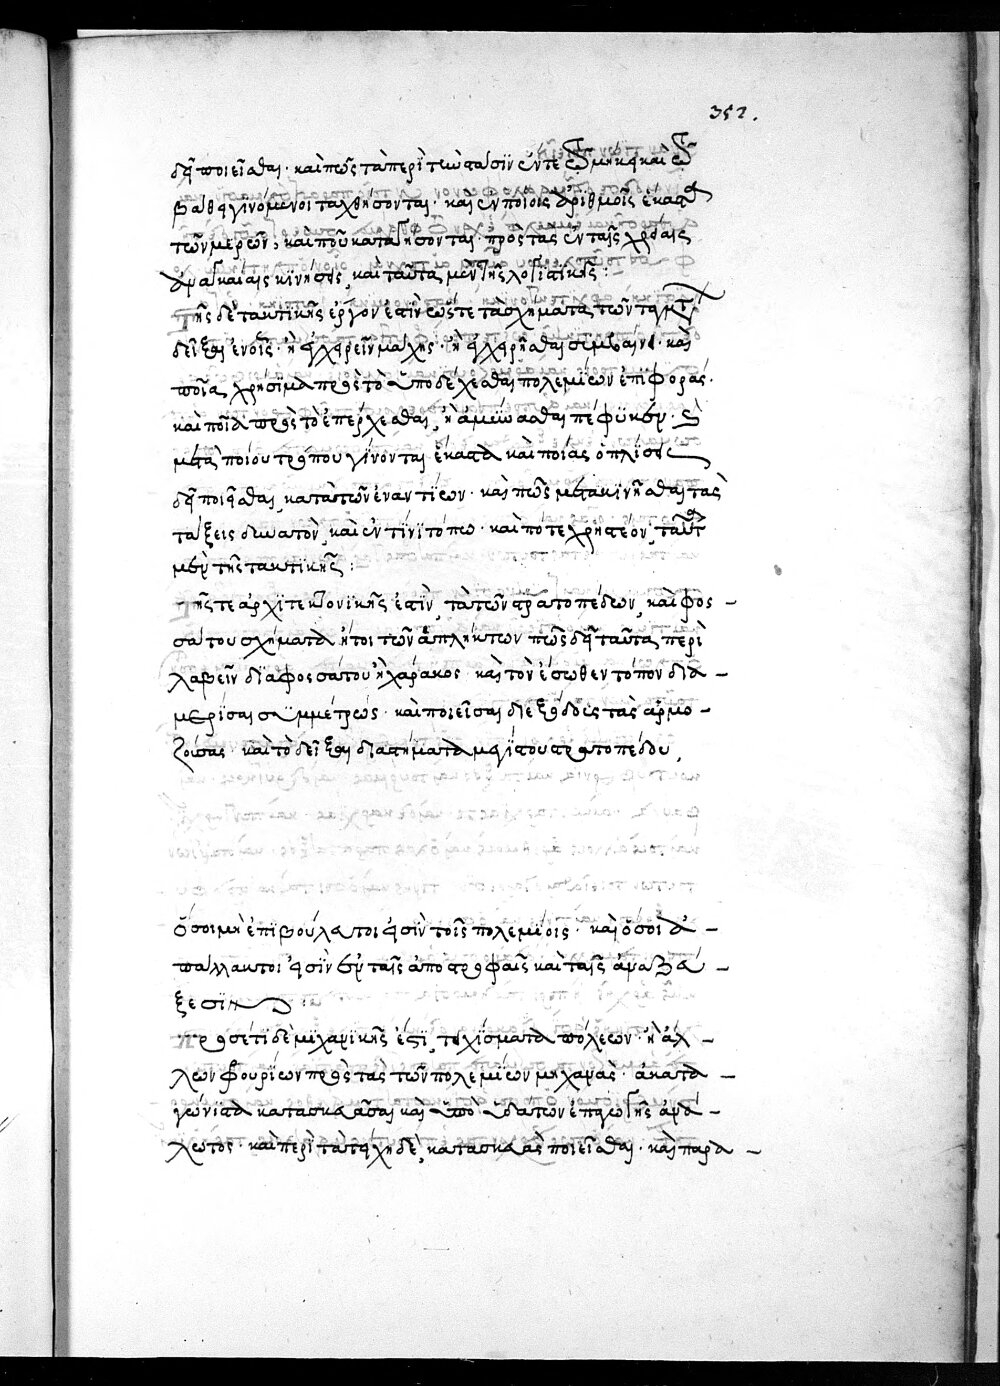 352.
δεῖ ποιεῖσθαι· καὶ πῶς τὰ περὶ τὲ τάσϊν ἔν τε τῶ μήκει καὶ τῶ
βάθει γϊνόμενοι ταχθήσονται· καὶ ἐν ποίοις ἀριθμοῖς ἕκαστα
τῶν μερῶν, καὶ ποῦ καταστήσονται πρὸς τὰς ἐν ταῖς χρείαις
ἀναγκαίαις κϊνήσεις, καὶ ταῦτα μὲν τῆς λογϊστϊκῆς:
Τῆς δὲ τακτικῆς ἔργον ἐστὶν ὥστε τὰ σχήματα τῶν τάξεων
δεῖξαι ἐν οἷς ἢ ἐγχειρεῖν μάχης· ἢ ἐγχειρεῖσθαι συμβαίνει· καὶ
ποῖα χρήσϊμα πρὸς τὸ ὑποδέχεσθαι πολεμΐων ἐπιφοράς·
καὶ ποῖα πρὸς τὸ ἐπέρχεσθαι, ἢ ἀμύνασθαι πέφϋκεν· καὶ
μετὰ ποίου τρόπου γίνονται ἕκαστα καὶ ποίας ὁπλίσεις
δεῖ ποιεῖσθαι κατὰ τῶν ἐναντΐων· καὶ πῶς μετακϊνεῖσθαι τὰς
τάξεις δυνατὸν, καὶ ἐν τίνϊ τόπω· καὶ πότε χρηστέον, ταῦτα
μὲν τῆς τακτϊκῆς:
Τῆς τε ἀρχϊτεκτονϊκῆς ἐστὶν, τὰ τῶν στρατοπέδων, καὶ φος-
σάτου σχήματα ἤτοι τῶν ἀπλήκτων πῶς δεῖ ταῦτα περὶ
λαβεῖν διὰ φοσσάτου ἢ χάρακος· καὶ τὸν ἔσωθεν τόπον δια-
μερίσαι συμμέτρως· καὶ ποιεῖσαι διεξόδους τὰς ἁρμο-
ζούσας· καὶ τὸ δεῖξαι διαστήματα μεγίστου στρατοπέδου,
ὅσοι μὴ ἐπιβούλευτοι εἰσὶν τοῖς πολεμίοις· καὶ ὅσοι ἀ-
πάλλακτοι εἰσὶν ἐν ταῖς ἀποστροφαῖς καὶ ταῖς ἀναζεύ-
ξεσϊν
Πρὸς ἔτι δὲ μϊχανϊκῆς ἐστὶ, τειχΐσματα πόλεων· ἢ ἄλ-
λων φρουρΐων πρὸς τὰς τῶν πολεμΐων μηχανὰς· ἀκατα
γώνιστα κατασκευάσαι καὶ ὑπὸ ὑδάτων ἐπαγωγῆς ἀνά-
λωτος· καὶ περὶ τὰ τείχη δὲ, κατασκευὰς ποιεῖσθαι· καὶ παρα-